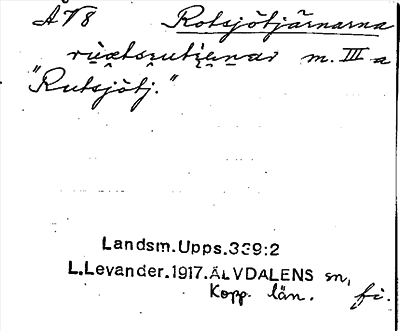 ÅT8 Rotsjötjärnarna
m. III a
"Rutsjötj."
Landsm.Upps.339:2
L.Levander.1917.ÄLVDALENS sn,
Kopp. län. fi.